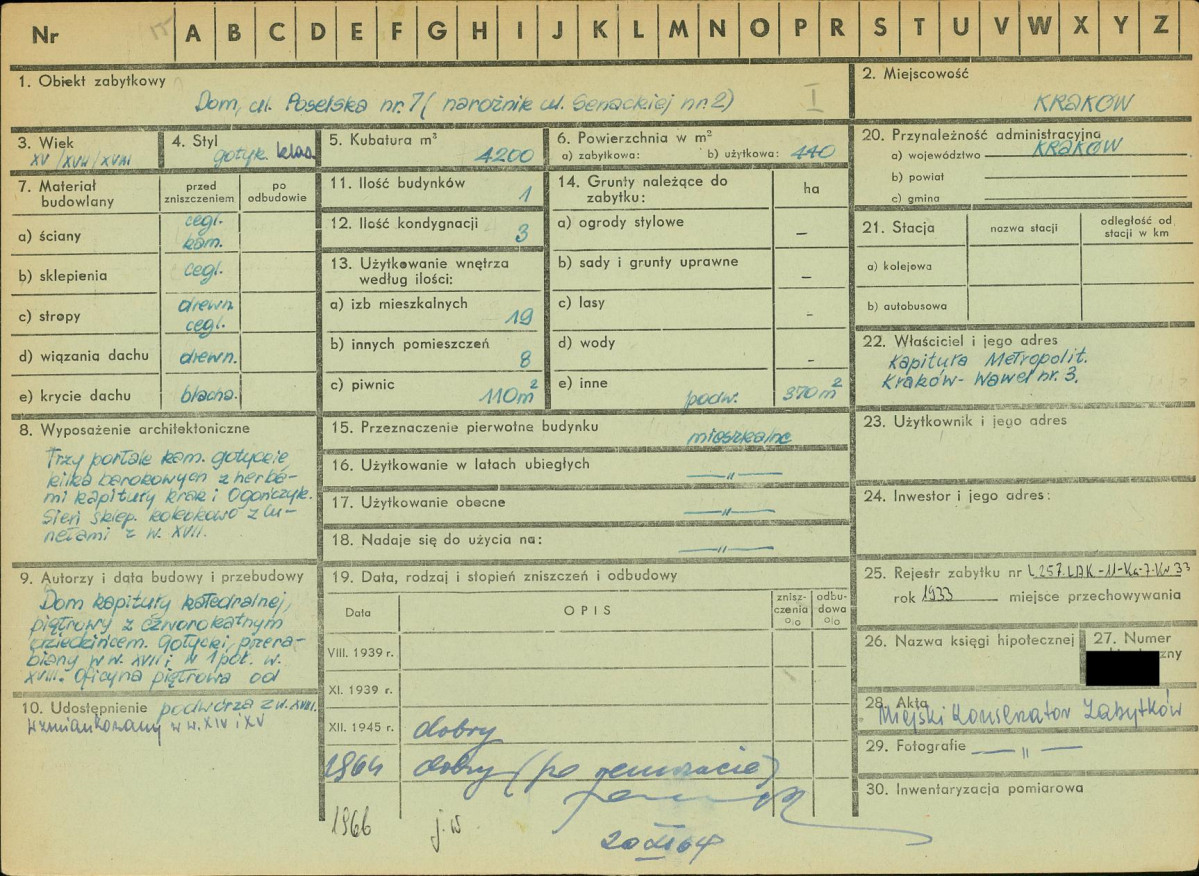 Nr A B C D E F G H I J K L M N O P R S T U V W X Y Z
1. Obiekt zabytkowy
Dom, ul. Poselska nr. 7 (narożnik ul. Senackiej nr. 2)
I
2. Miejscowość
KRAKÓW
3. Wiek
XV/XVII/XVIII
4. Styl
gotyk. klas.
5. Kubatura m³
4200
6. Powierzchnia w m²
a) zabytkowa: b) użytkowa: 440
20. Przynależność administracyjna
a) województwo KRAKÓW
b) powiat
c) gmina
7. Materiał budowlany
przed zniszczeniem
po odbudowie
a) ściany cegl. kam.
b) sklepienia cegl.
c) stropy drewn. cegl.
d) wiązania dachu drewn.
e) krycie dachu blacha.
11. Ilość budynków 1
12. Ilość kondygnacji 3
13. Użytkowanie wnętrza
według ilości:
a) izb mieszkalnych 19
b) innych pomieszczeń 8
c) piwnic 110m²
14. Grunty należące do
zabytku:
ha
a) ogrody stylowe –
b) sady i grunty uprawne –
c) lasy -
d) wody –
e) inne podw. 370m²
21. Stacja
nazwa stacji
odległość od
stacji w km
a) kolejowa
b) autobusowa
22. Właściciel i jego adres
Kapituła Metropolit.
Kraków-Wawel nr. 3.
8. Wyposażenie architektoniczne
Trzy portale kam. gotyckie
kilka barokowych z herba-
mi kapituły krak i Ogończyk.
Sień sklep. kolebkowo z lu-
netami z w. XVII.
15. Przeznaczenie pierwotne budynku mieszkalne
16. Użytkowanie w latach ubiegłych —"—
17. Użytkowanie obecne —"—
18. Nadaje się do użycia na: —"—
23. Użytkownik i jego adres
24. Inwestor i jego adres:
9. Autorzy i data budowy i przebudowy
Dom kapituły katedralnej,
piętrowy z czworokątnym
dziedzińcem. Gotycki, przera-
biany w w. XVII i w 1 poł. w.
XVIII. Oficyna piętrowa od
podwórza z w. XVIII.
10. Udostępnienie
Wzmiankowany w w. XIV i XV
19. Data, rodzaj i stopień zniszczeń i odbudowy
Data
OPIS
znisz-
czenia
%
odbu-
dowa
%
VIII. 1939 r.
XI. 1939 r.
XII. 1945 r. dobry
1964 dobry (po remoncie)
20 XI 64
1966 j.w.
25. Rejestr zabytku nr L 257 LAK-11-Ka-7-Kr 33
rok 1933 miejsce przechowywania
26. Nazwa księgi hipotecznej
27. Numer
28. Akta
Miejski Konserwator Zabytków
29. Fotografie —"—
30. Inwentaryzacja pomiarowa